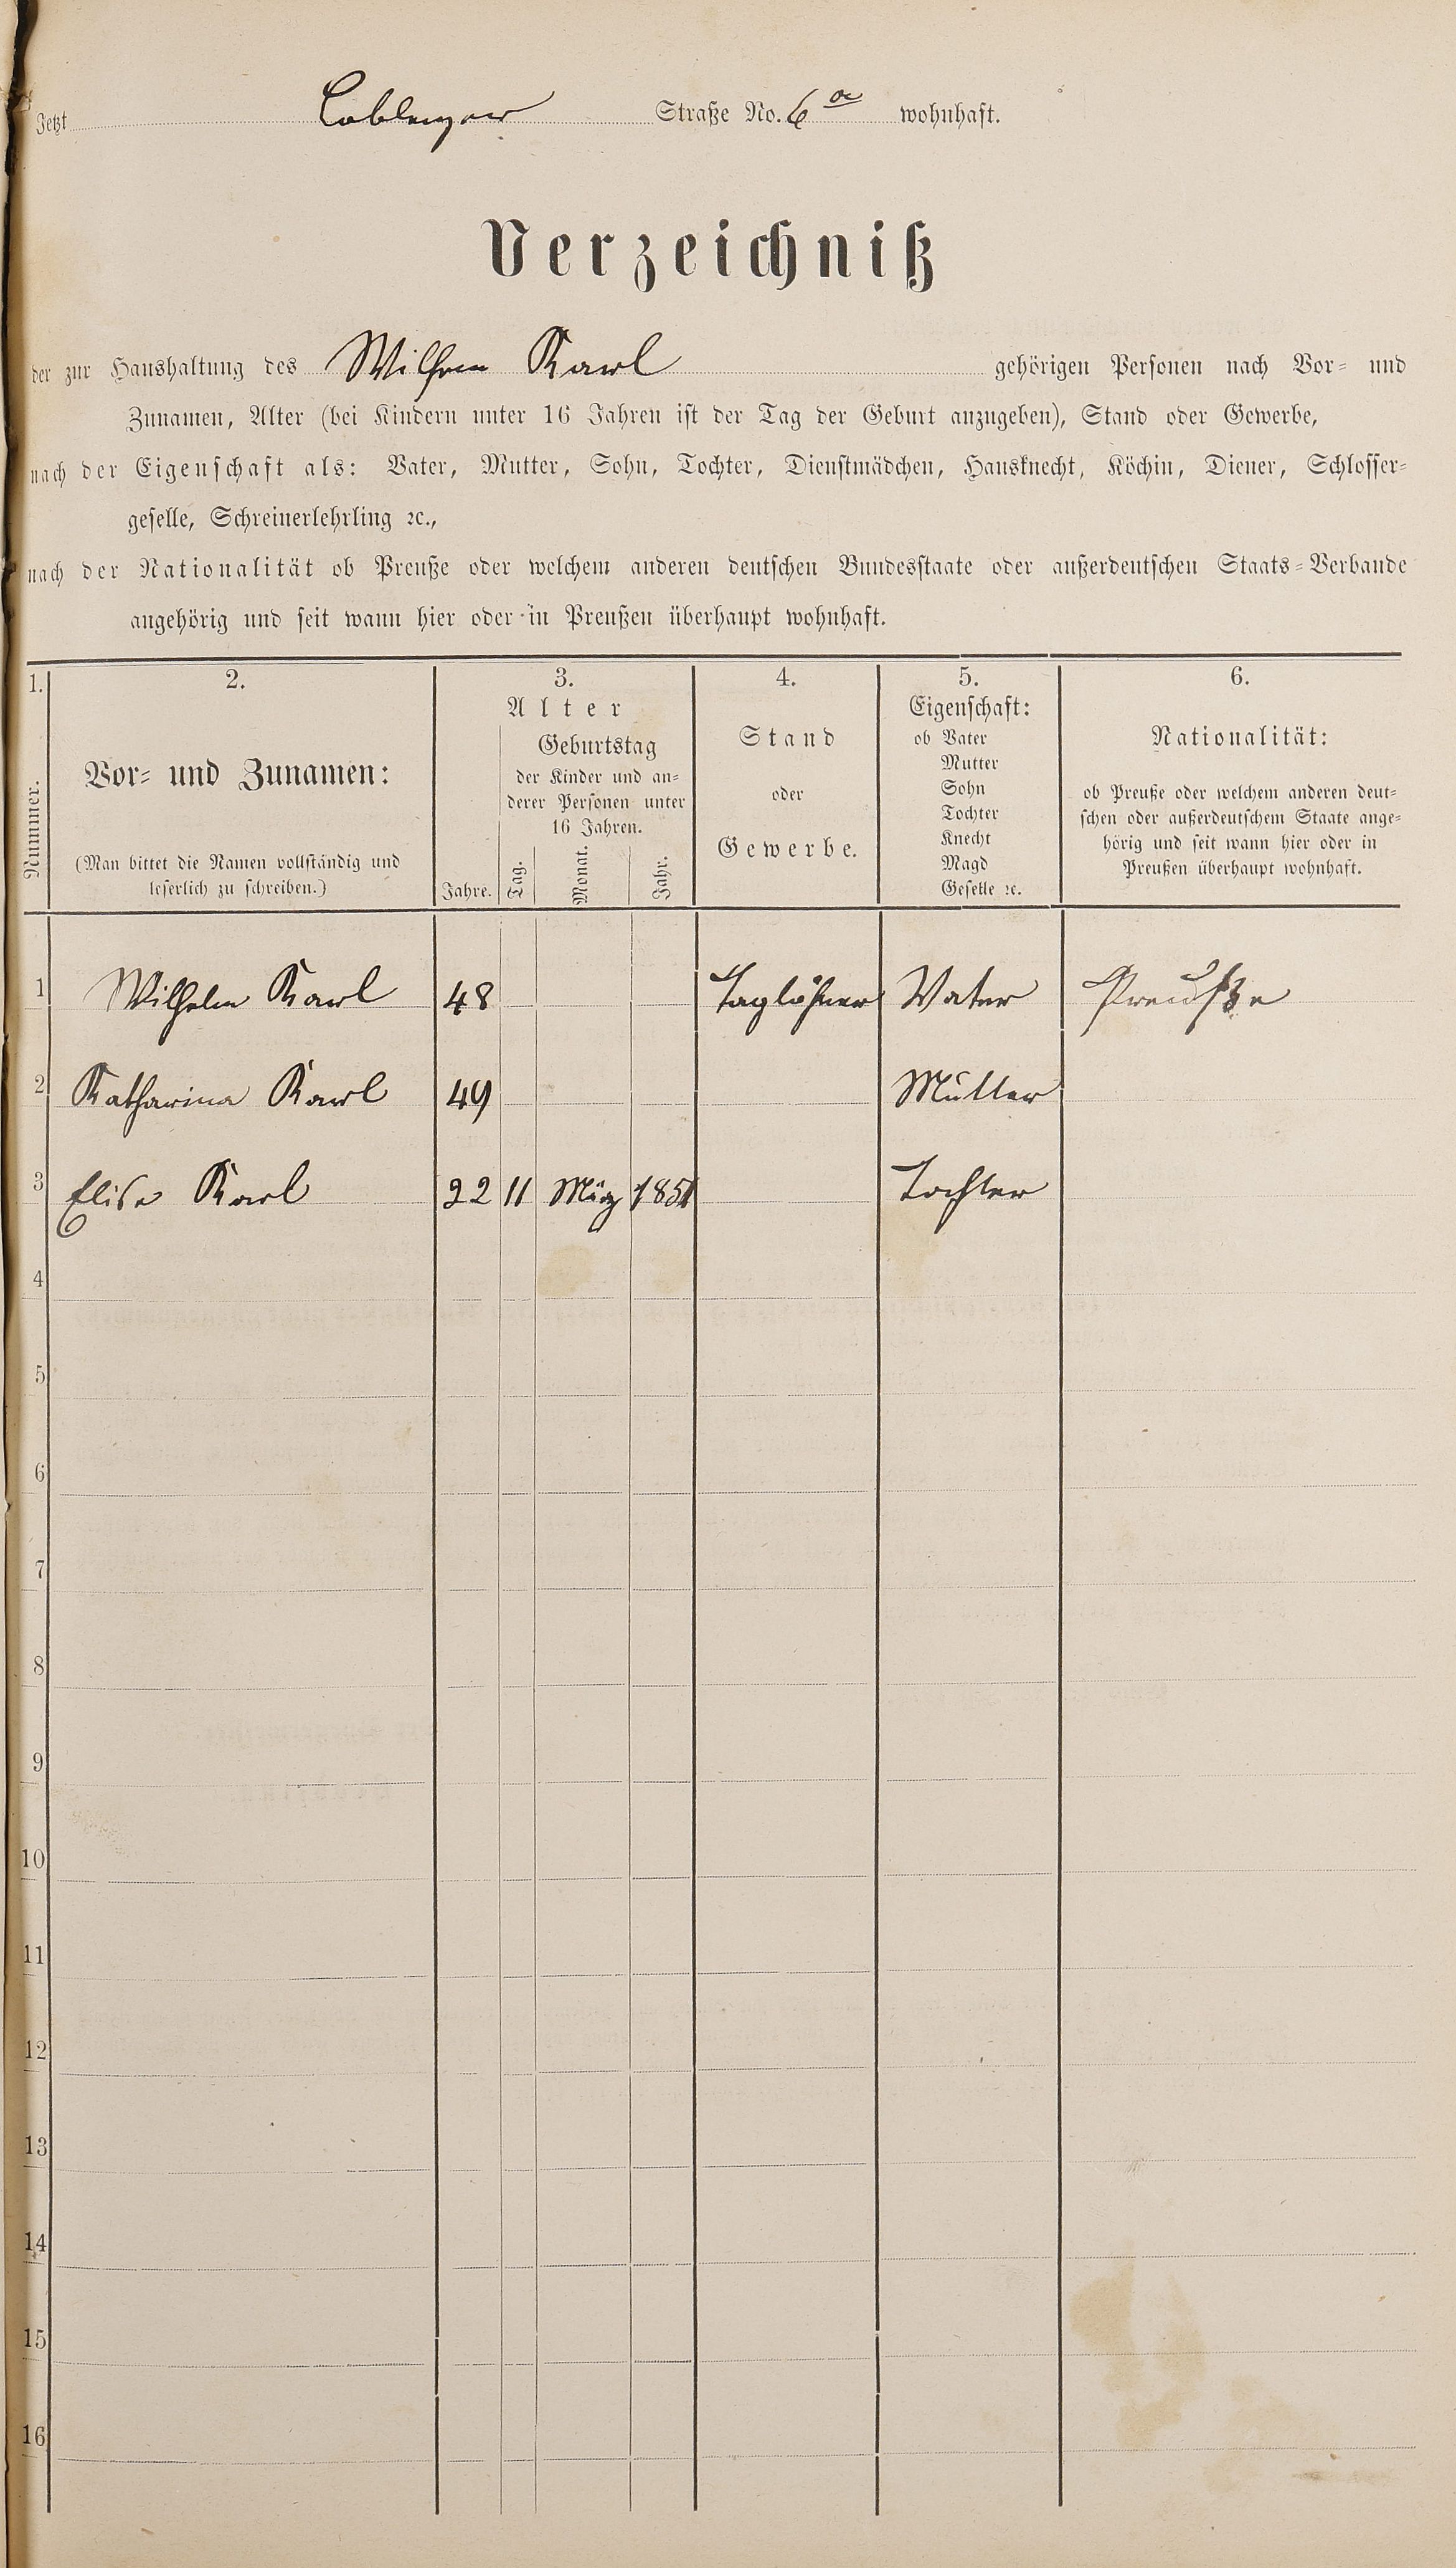 Jetzt Coblenzer Straße No. 6 a wohnhaft.
Verzeichniß
der zur Haushaltung des Wilhem Karl gehörigen Personen nach Vor- und
Zunamen, Alter (bei Kindern unter 16 Jahren ist der Tag der Geburt anzugeben), Stand oder Gewerbe,
nach der Eigenschaft als: Vater, Mutter, Sohn, Tochter, Dienstmädchen, Hausknecht, Köchin, Diener, Schlosser-
geselle, Schreinerlehrling ꝛc.,
nach der Nationalität ob Preuße oder welchem anderen deutschen Bundesstaate oder außerdeutschen Staats-Verbande
angehörig und seit wann hier oder in Preußen überhaupt wohnhaft.
1. 2. 3. 4. 5. 6.
Nummer.
Vor- und Zunamen:
(Man bittet die Namen vollständig und
leserlich zu schreiben.)
Alter
Jahre.
Geburtstag
der Kinder und an-
derer Personen unter
16 Jahren.
Tag. Monat. Jahr.
Stand
oder
Gewerbe.
Eigenschaft:
ob Vater
Mutter
Sohn
Tochter
Knecht
Magd
Geselle ꝛc.
Nationalität:
ob Preuße oder welchem anderen deut-
schen oder außerdeutschem Staate ange-
hörig und seit wann hier oder in
Preußen überhaupt wohnhaft.
1 Wilhelm Karl 48 Taglöhner Vater Preuße
2 Katharina Karl 49 Mutter
3 Elise Karl 22 11 März 1851 Tochter
4
5
6
7
8
9
10
11
12
13
14
15
16